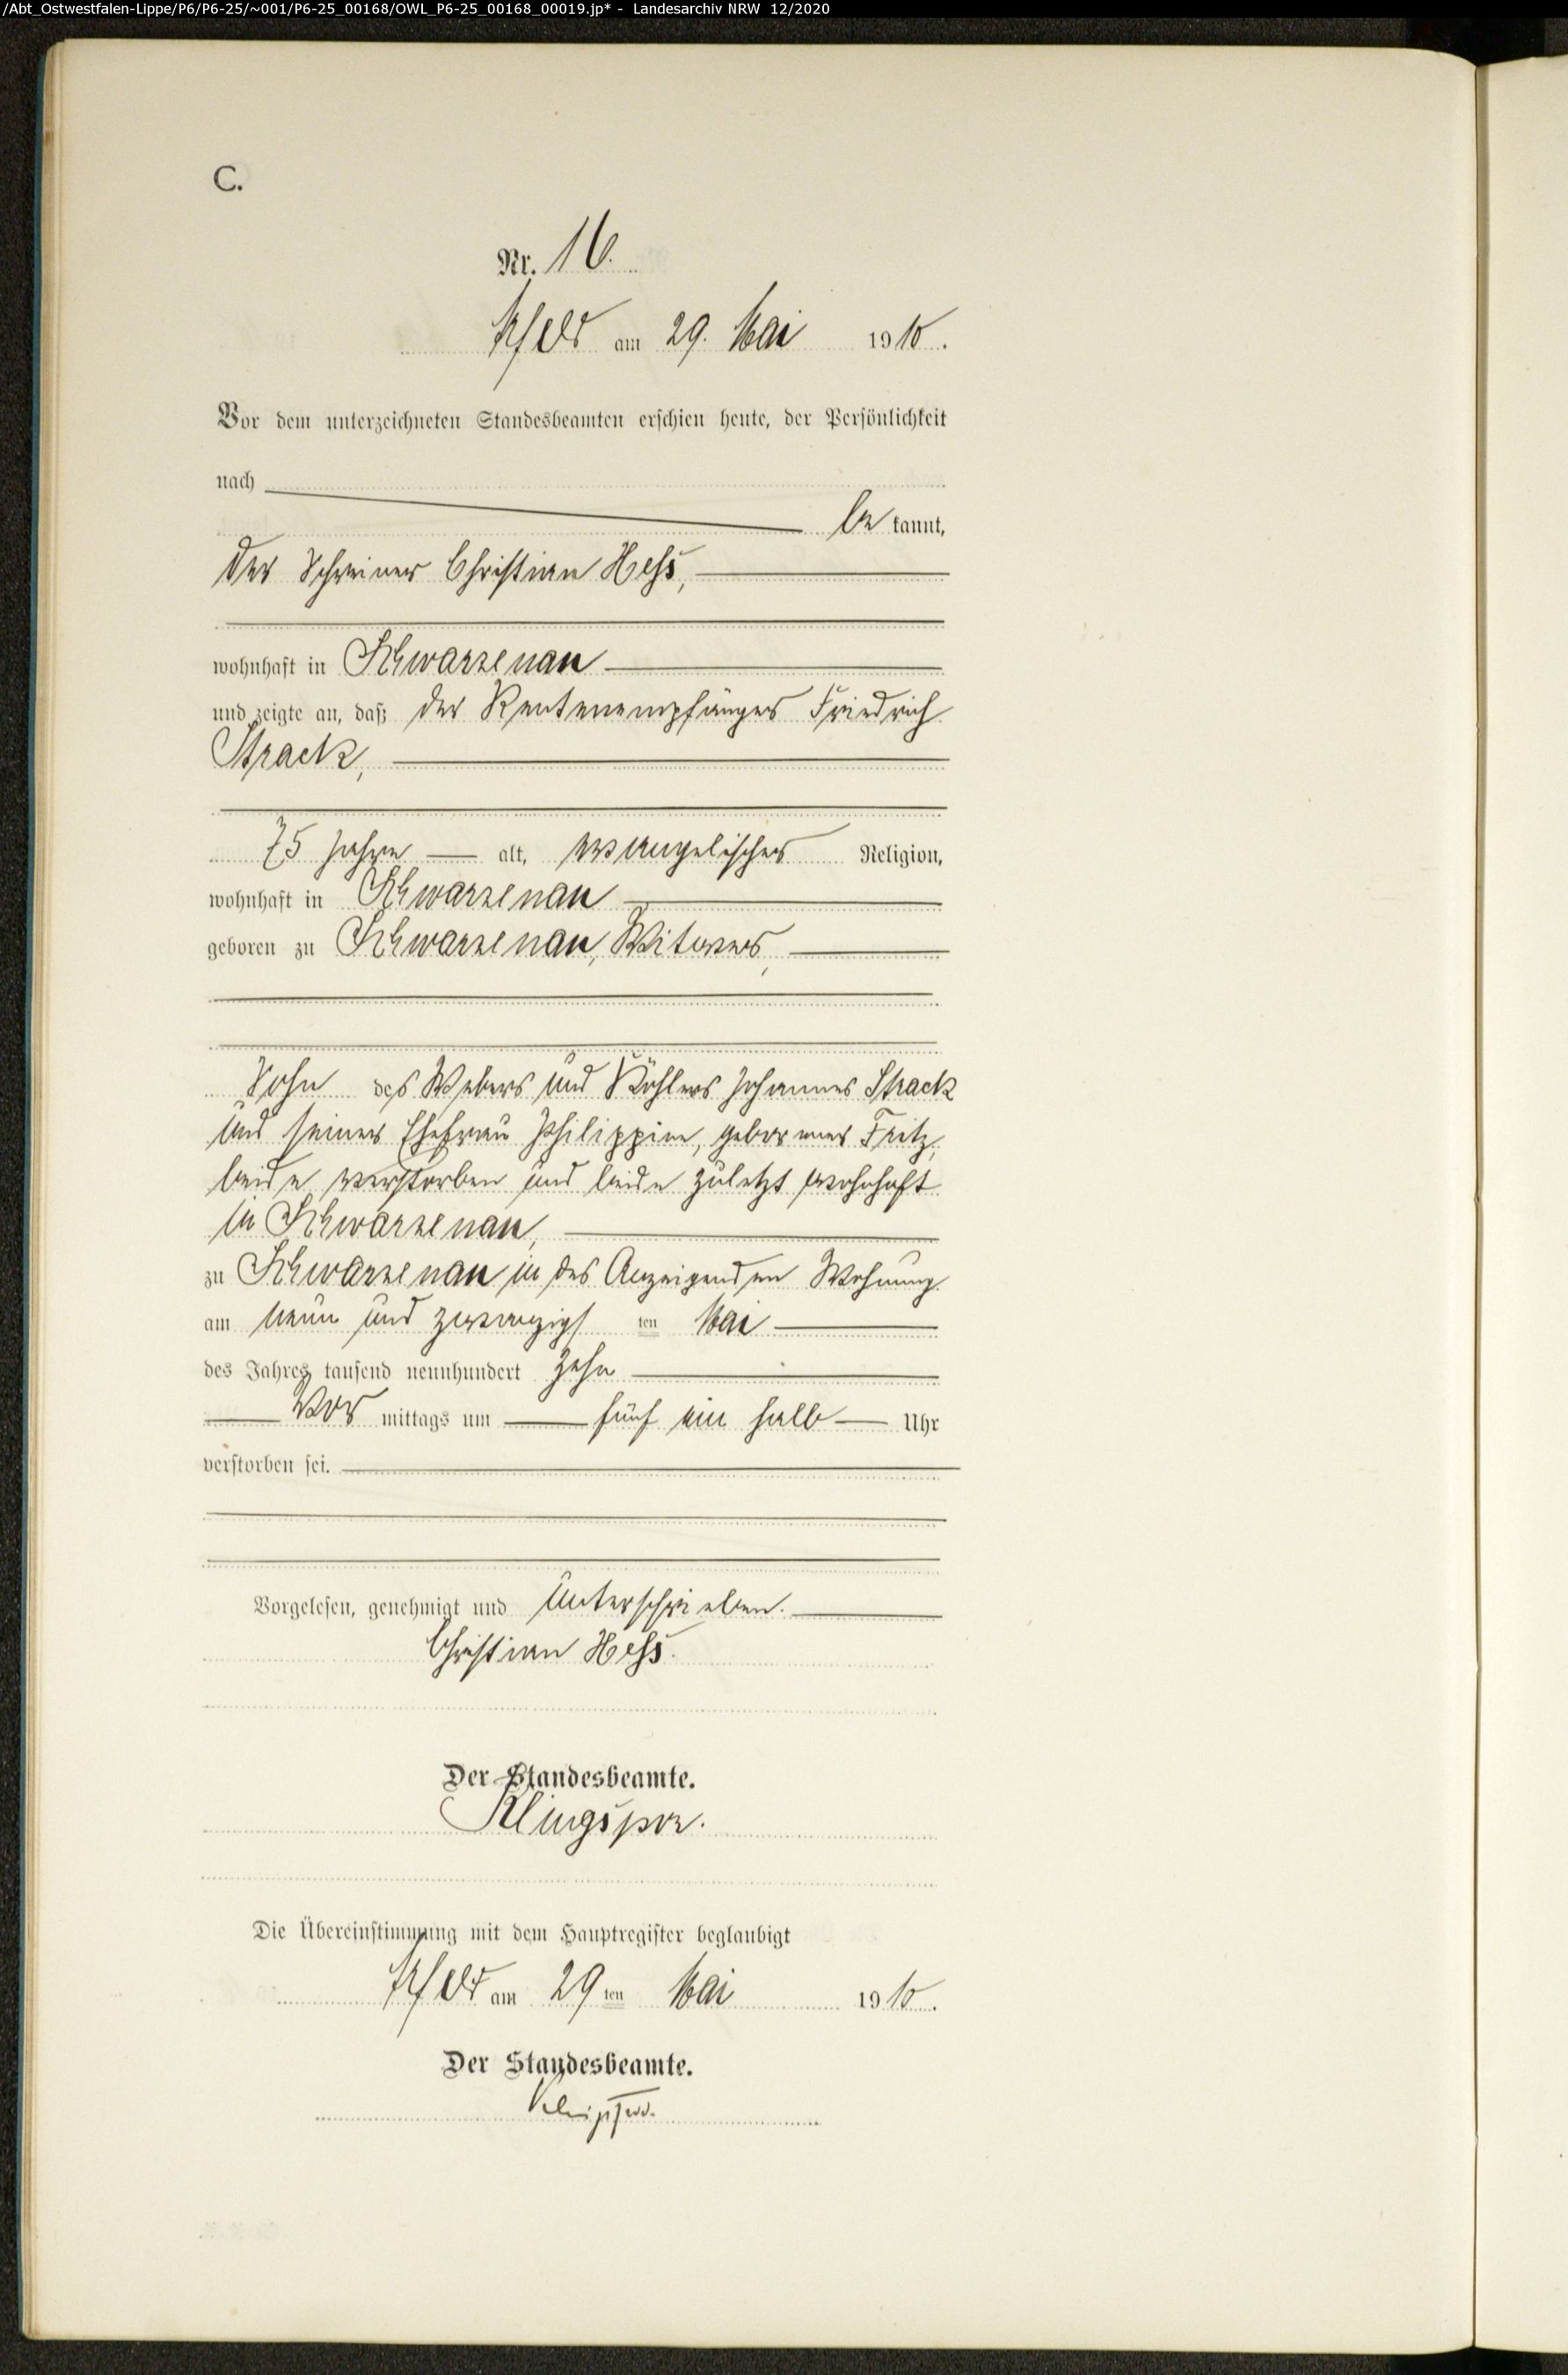 /Abt_Ostwestfalen-Lippe/P6/P6-25/~001/P6-25_00168/OWL_P6-25_00168_00019.jp* - Landesarchiv NRW 12/2020
C.
Nr. 16.
Arfeld am 29. Mai 1910.
Vor dem unterzeichneten Standesbeamten erschien heute, der Persönlichkeit
nach
be kannt,
der Schreiner Christian Heß,
wohnhaft in Schwarzenau
und zeigte an, daß der Rentenempfänger Friedrich
Strack,
75 Jahre alt, evangelischer Religion,
wohnhaft in Schwarzenau
geboren zu Schwarzenau, Witwer,
Sohn des Webers und Köhlers Johannes Strack
und seiner Ehefrau Philippine, geborener Fritz,
beide verstorben und beide zuletzt wohnhaft
in Schwarzenau,
zu Schwarzenau in des Anzeigenden Wohnung
am neun und zwanzigs ten Mai
des Jahres tausend neunhundert zehn
Vor mittags um fünf ein halb Uhr
verstorben sei.
Vorgelesen, genehmigt und unterschrieben.
Christian Heß.
Der Standesbeamte.
Klingspor.
Die Übereinstimmung mit dem Hauptregister beglaubigt
Arfeld am 29 ten Mai 1910.
Der Standesbeamte.